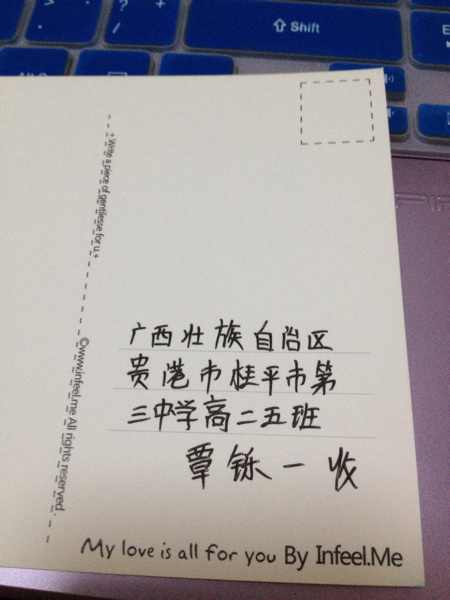 Shift
+ Write a piece of gentlesse for u +
©www.infeel.me All rights reserved.
广西壮族自治区
贵港市桂平市第
三中学高二五班
覃铄一收
My love is all for you By Infeel.Me